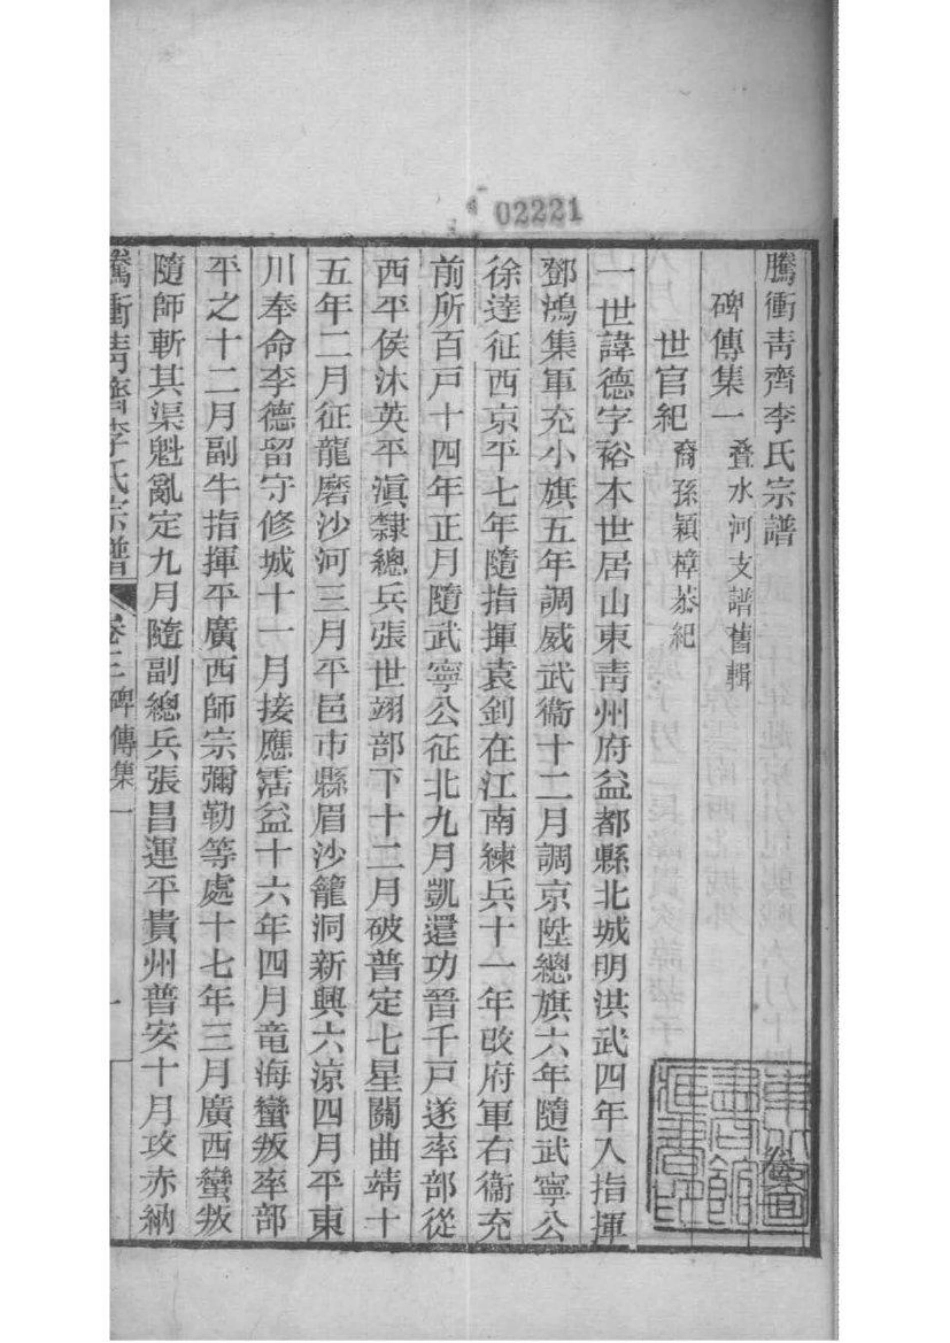 02221
騰衝青齊李氏宗譜
碑傳集一 叠水河支譜舊輯
世官紀 裔孫穎樟恭紀
一世諱德字裕本世居山東靑州府益都縣北城明洪武四年入指揮
鄧鴻集軍充小旗五年調威武衞十二月調京陞總旗六年隨武寧公
徐達征西京平七年隨指揮袁釗在江南練兵十一年改府軍右衞充
前所百戸十四年正月隨武寧公征北九月凱還功晉千戸遂率部從
西平侯沐英平滇隸總兵張世翊部下十二月破普定七星關曲靖十
五年二月征龍磨沙河三月平邑市縣眉沙籠洞新興六凉四月平東
川奉命李德留守修城十一月接應霑益十六年四月竜海蠻叛率部
平之十二月副牛指揮平廣西師宗彌勒等處十七年三月廣西蠻叛
隨師斬其渠魁亂定九月隨副總兵張昌運平貴州普安十月攻赤納
騰衝青齊李氏宗譜 卷三 碑傳集一 一